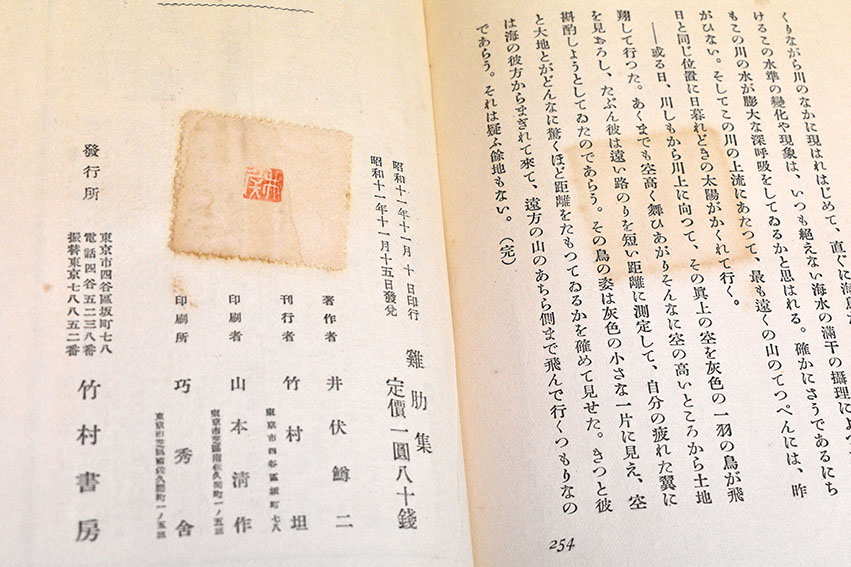 くりながら川のなかに現はれはじめて、直ぐに海鳥
けるこの水準の變化や現象は、いつも絶えない海水の滿干の攝理によつ
もこの川の水が膨大な深呼吸をしてゐるかと思はれる。確かにさうであるにち
がひない。そしてこの川の上流にあたつて、最も遠くの山のてつぺんには、昨
日と同じ位置に日暮れどきの太陽がかくれて行く。
――或る日、川しもから川上に向つて、その眞上の空を灰色の一羽の鳥が飛
翔して行つた。あくまでも空高く舞ひあがりそんなに空の高いところから土地
を見おろし、たぶん彼は遠い路のりを短い距離に測定して、自分の疲れた翼に
斟酌しようとしてゐたのであらう。その鳥の姿は灰色の小さな一片に見え、空
と大地とがどんなに驚くほど距離をたもつてゐるかを確めて見せた。きつと彼
は海の彼方からまぎれて來て、遠方の山のあちら側まで飛んで行くつもりなの
であらう。それは疑ふ餘地もない。(完)
254
雞肋集
定價一圓八十錢
昭和十一年十一月十日印行
昭和十一年十一月十五日發兌
著作者 井伏鱒二
刊行者 竹村坦
東京市四谷區坂町七八
印刷者 山本淸作
東京市芝區南佐久間町一ノ五三
印刷所 巧秀舍
東京市芝區南佐久間町一ノ五三
發行所
東京市四谷區坂町七八
電話四谷五二三八番
振替東京七八八五二番
竹村書房